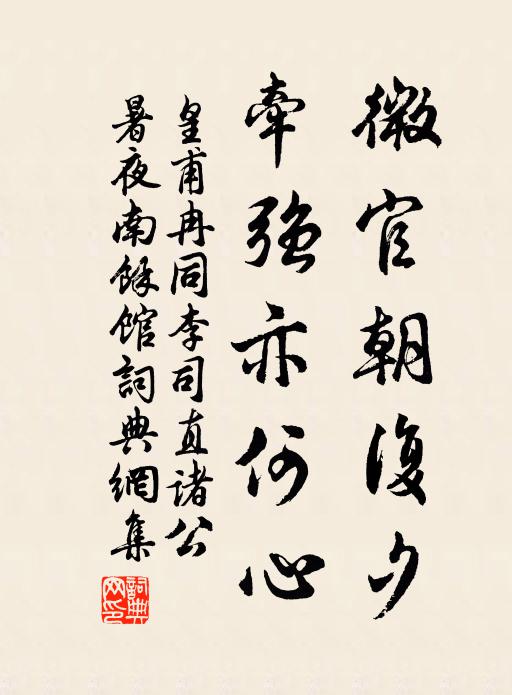 微官朝復夕
牽強亦何心
皇甫冉同李司直諸公
暑夜南餘館詞典網集
詞典网印